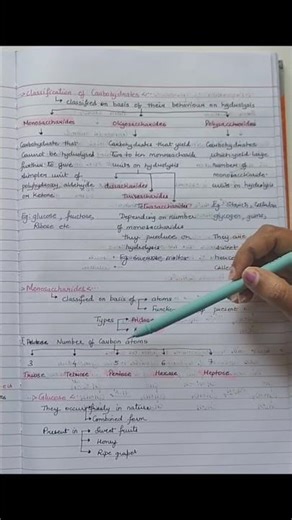 > Classification of Carbohydrates <
↳ classified on basis of their behaviour on hydrolysis
Monosaccharides Oligosaccharides Polysaccharides
Carbohydrate that Carbohydrate that yield Carbohydrates
cannot be hydrolysed two to ten monosaccharide which yield large
further to give units on hydrolysis number of
simpler unit of disaccharides monosaccharide
polyhydroxy aldehyde Trisaccharides units on hydrolysis
or ketone Tetrasaccharides Eg:
Eg. glucose, fructose, Depending on number glycogen, gums,
Ribose etc of monosaccharides
They produce on They are
hydrolysis
Eg
> Monosaccharides <
↳ Classified on basis of → atoms
→ present
Types → Aldose
→
Number of Carbon atoms
3 4 5 6 7
Triose Tetrose Pentose Hexose Heptose
> Glucose <
They occur → freely in nature
→ Combined form
Present in → Sweet fruits
→ Honey
→ Ripe grapes